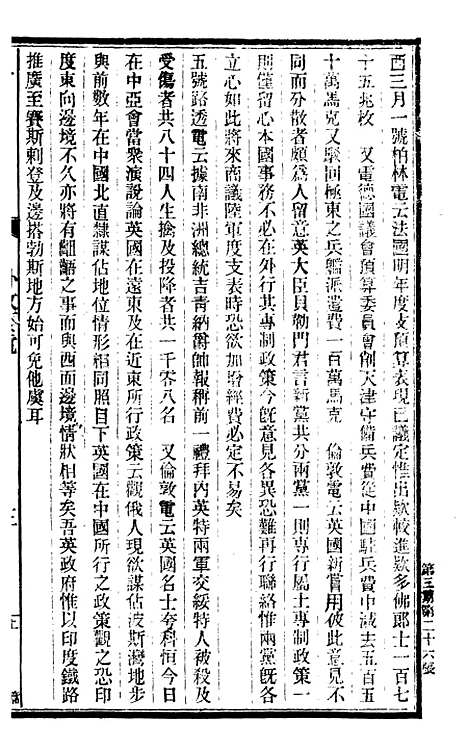 酉三月一號柏林電云法國明年度支預算表現已議定惟出欵較進欵多佛郎士一百七
十五兆枚　又電德國議會預算委員會削天津守備兵費從中國駐兵費中減去五百五
十萬馬克又駁回極東之兵艦派遣費一百萬馬克　倫敦電云英國新嘗用彼此意見不
同而分散者頗爲人留意英大臣貝勒門君言新黨共分兩黨一則專行屬土專制政策一
則僅留心本國事務不必在外行其專制政策今旣意見各異恐難再行聯絡惟兩黨旣各
立心如此將來商議陸軍度支表時恐欲加增經費必定不易矣
五號路透電云據南非洲總統吉青納爵帥報稱前一禮拜內英特兩軍交綏特人被殺及
受傷者共八十四人生擒及投降者共一千零八名　又倫敦電云英國名士夸科恒今日
在中亞會當衆演說論英國在遠東及在近東所行政策云觀俄人現欲謀佔波斯灣地步
與前數年在中國北直隸謀佔地位情形相同照目下英國在中國所行之政策觀之恐印
度東向邊境不久亦將有齟齬之事而與西面邊境情狀相等矣吾英政府惟以印度鐵路
推廣至賽斯剌登及邊搭勃斯地方始可免他虞耳
第三期第二十六張